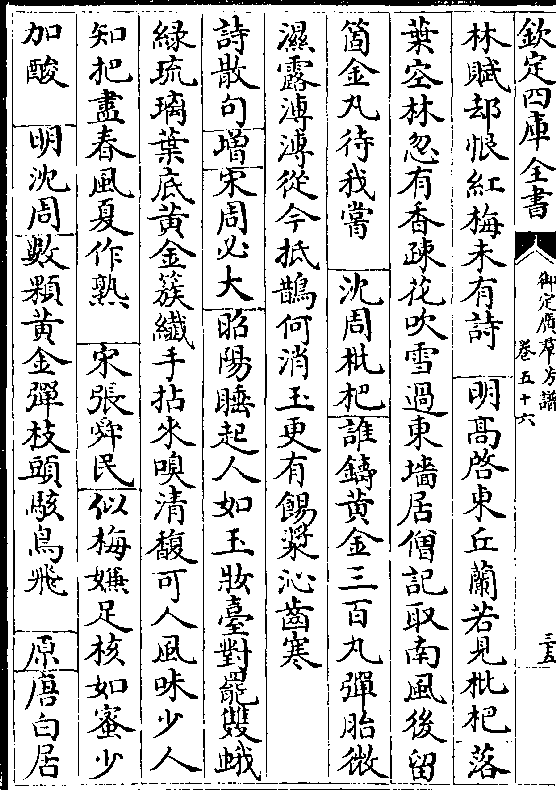 欽定四庫全書
御定廣羣芳譜
卷五十六
三五
林賦却恨紅梅未有詩　明高啓東丘蘭若見枇杷落
葉空林忽有香疎花吹雪過東墻居僧記取南風後留
箇金丸待我嘗　沈周枇杷誰鑄黄金三百丸彈胎微
濕露漙漙從今抵鵲何消玉更有餳漿沁齒寒
詩散句增宋周必大昭陽睡起人如玉妝臺對罷雙蛾
緑琉璃葉底黄金簇纖手拈來嗅清馥可人風味少人
知把盡春風夏作熟　宋張舜民似梅嫌足核如蜜少
加酸　明沈周數顆黄金彈枝頭駭鳥飛　原唐白居